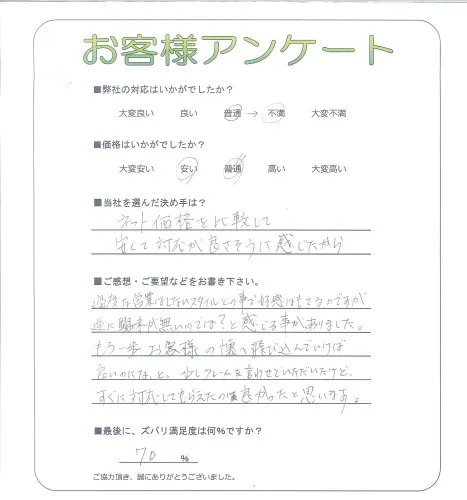 お客様アンケート
■弊社の対応はいかがでしたか？
大変良い 良い 普通 → 不満 大変不満
■価格はいかがでしたか？
大変安い 安い 普通 高い 大変高い
■当社を選んだ決め手は？
ネット価格を比較して
安くて対応が良さそうに感じたから
■ご感想・ご要望などをお書き下さい。
過度な営業はしないスタイルとの事で好感はもてるのですが
逆に興味が無いのでは？と感じる事がありました。
もう一歩お客様の懐へ飛び込んでいけば
良いのになと。少しクレームを言わせていただいたけど、
すぐに対応してもらえたのは良かったと思います。
■最後に、ズバリ満足度は何%ですか？
70 %
ご協力頂き、誠にありがとうございました。